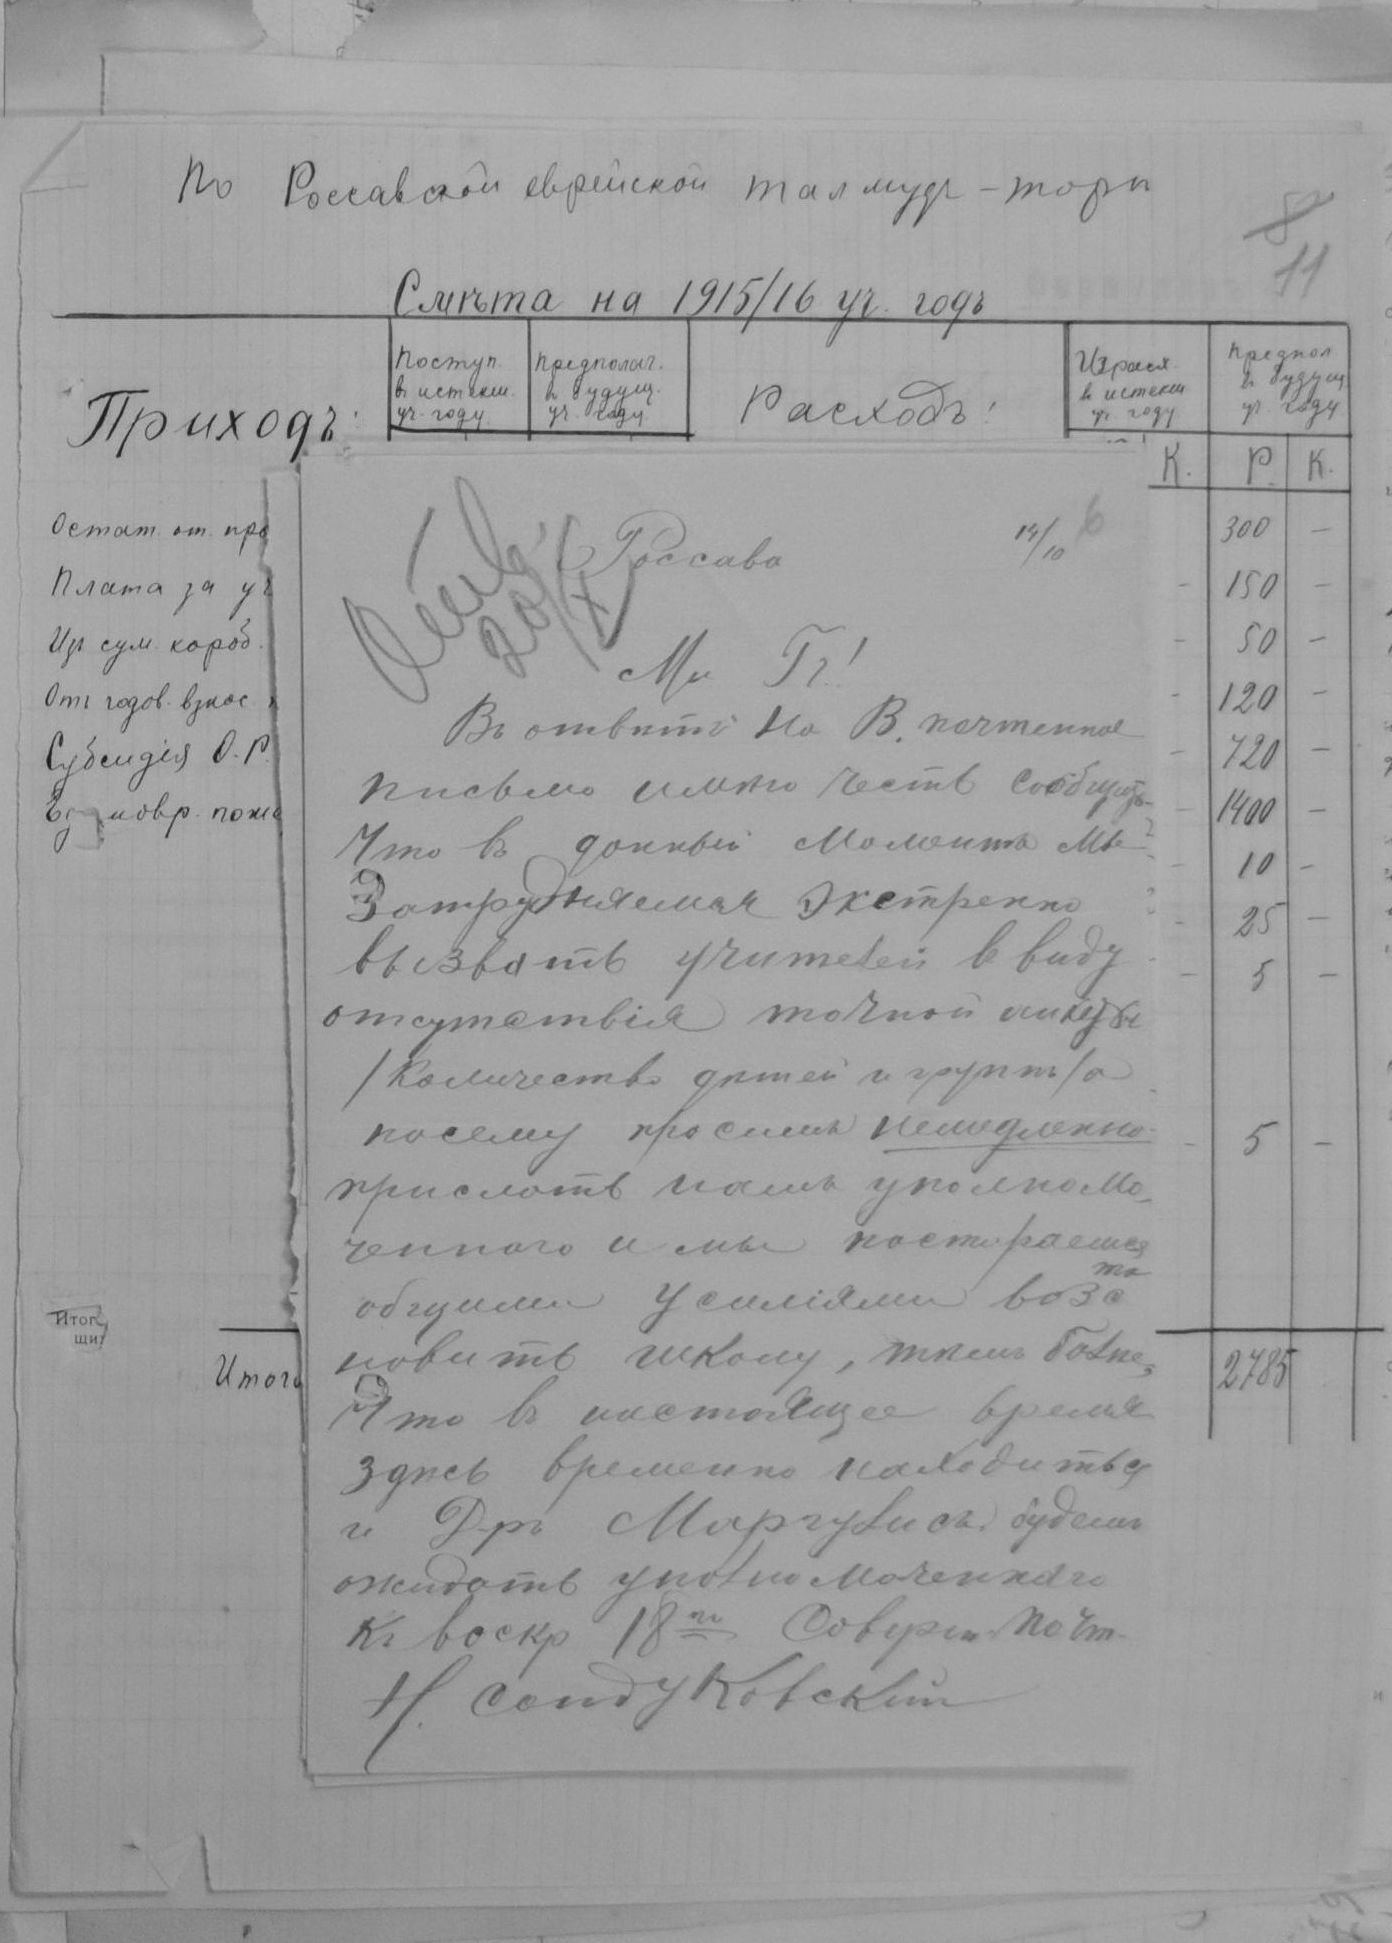 По Россавской еврейской талмудъ-торы
8
11
Смѣта на 1915/16 уч. годъ
Приходъ:
Поступ.
въ истекш.
уч. году.
Предполаг.
въ будущ.
уч. году.
Расходъ:
Израсх.
въ истекш
уч. году
Предпол
въ будущ.
уч. году
К.
Р.
К.
Остат. от. про
Плата за уч
Изъ сум. короб.
Отъ годов. взнос.
Субсидія О.Р.
300 —
- 150 -
- 50 -
- 120 -
- 720 -
- 1400 -
- 10 -
- 25 -
- 5 -
- 5 -
Итог
щи
Итого
2785
20/X
Россава
14/10
6
М. Гг!
Въ отвѣтъ на В. почтенное
письмо имѣю честь сообщить
Что въ данный моментъ мы
Затрудняемся экстренно
вызвать учителей въ виду
отсутствія точной анкеты
/количество дѣтей и группъ/а
посему просимъ немедленно
прислать намъ уполномо-
ченного и мы постараемся
общими усиліями возста
новить школу, тѣмъ болѣе,
Что въ настоящее время
здѣсь временно находиться
и Д-ръ Маргулисъ. будемъ
ожидать уполномоченнаго
Къ воскр 18го Соверш. Почт.
Н. Сандуковский